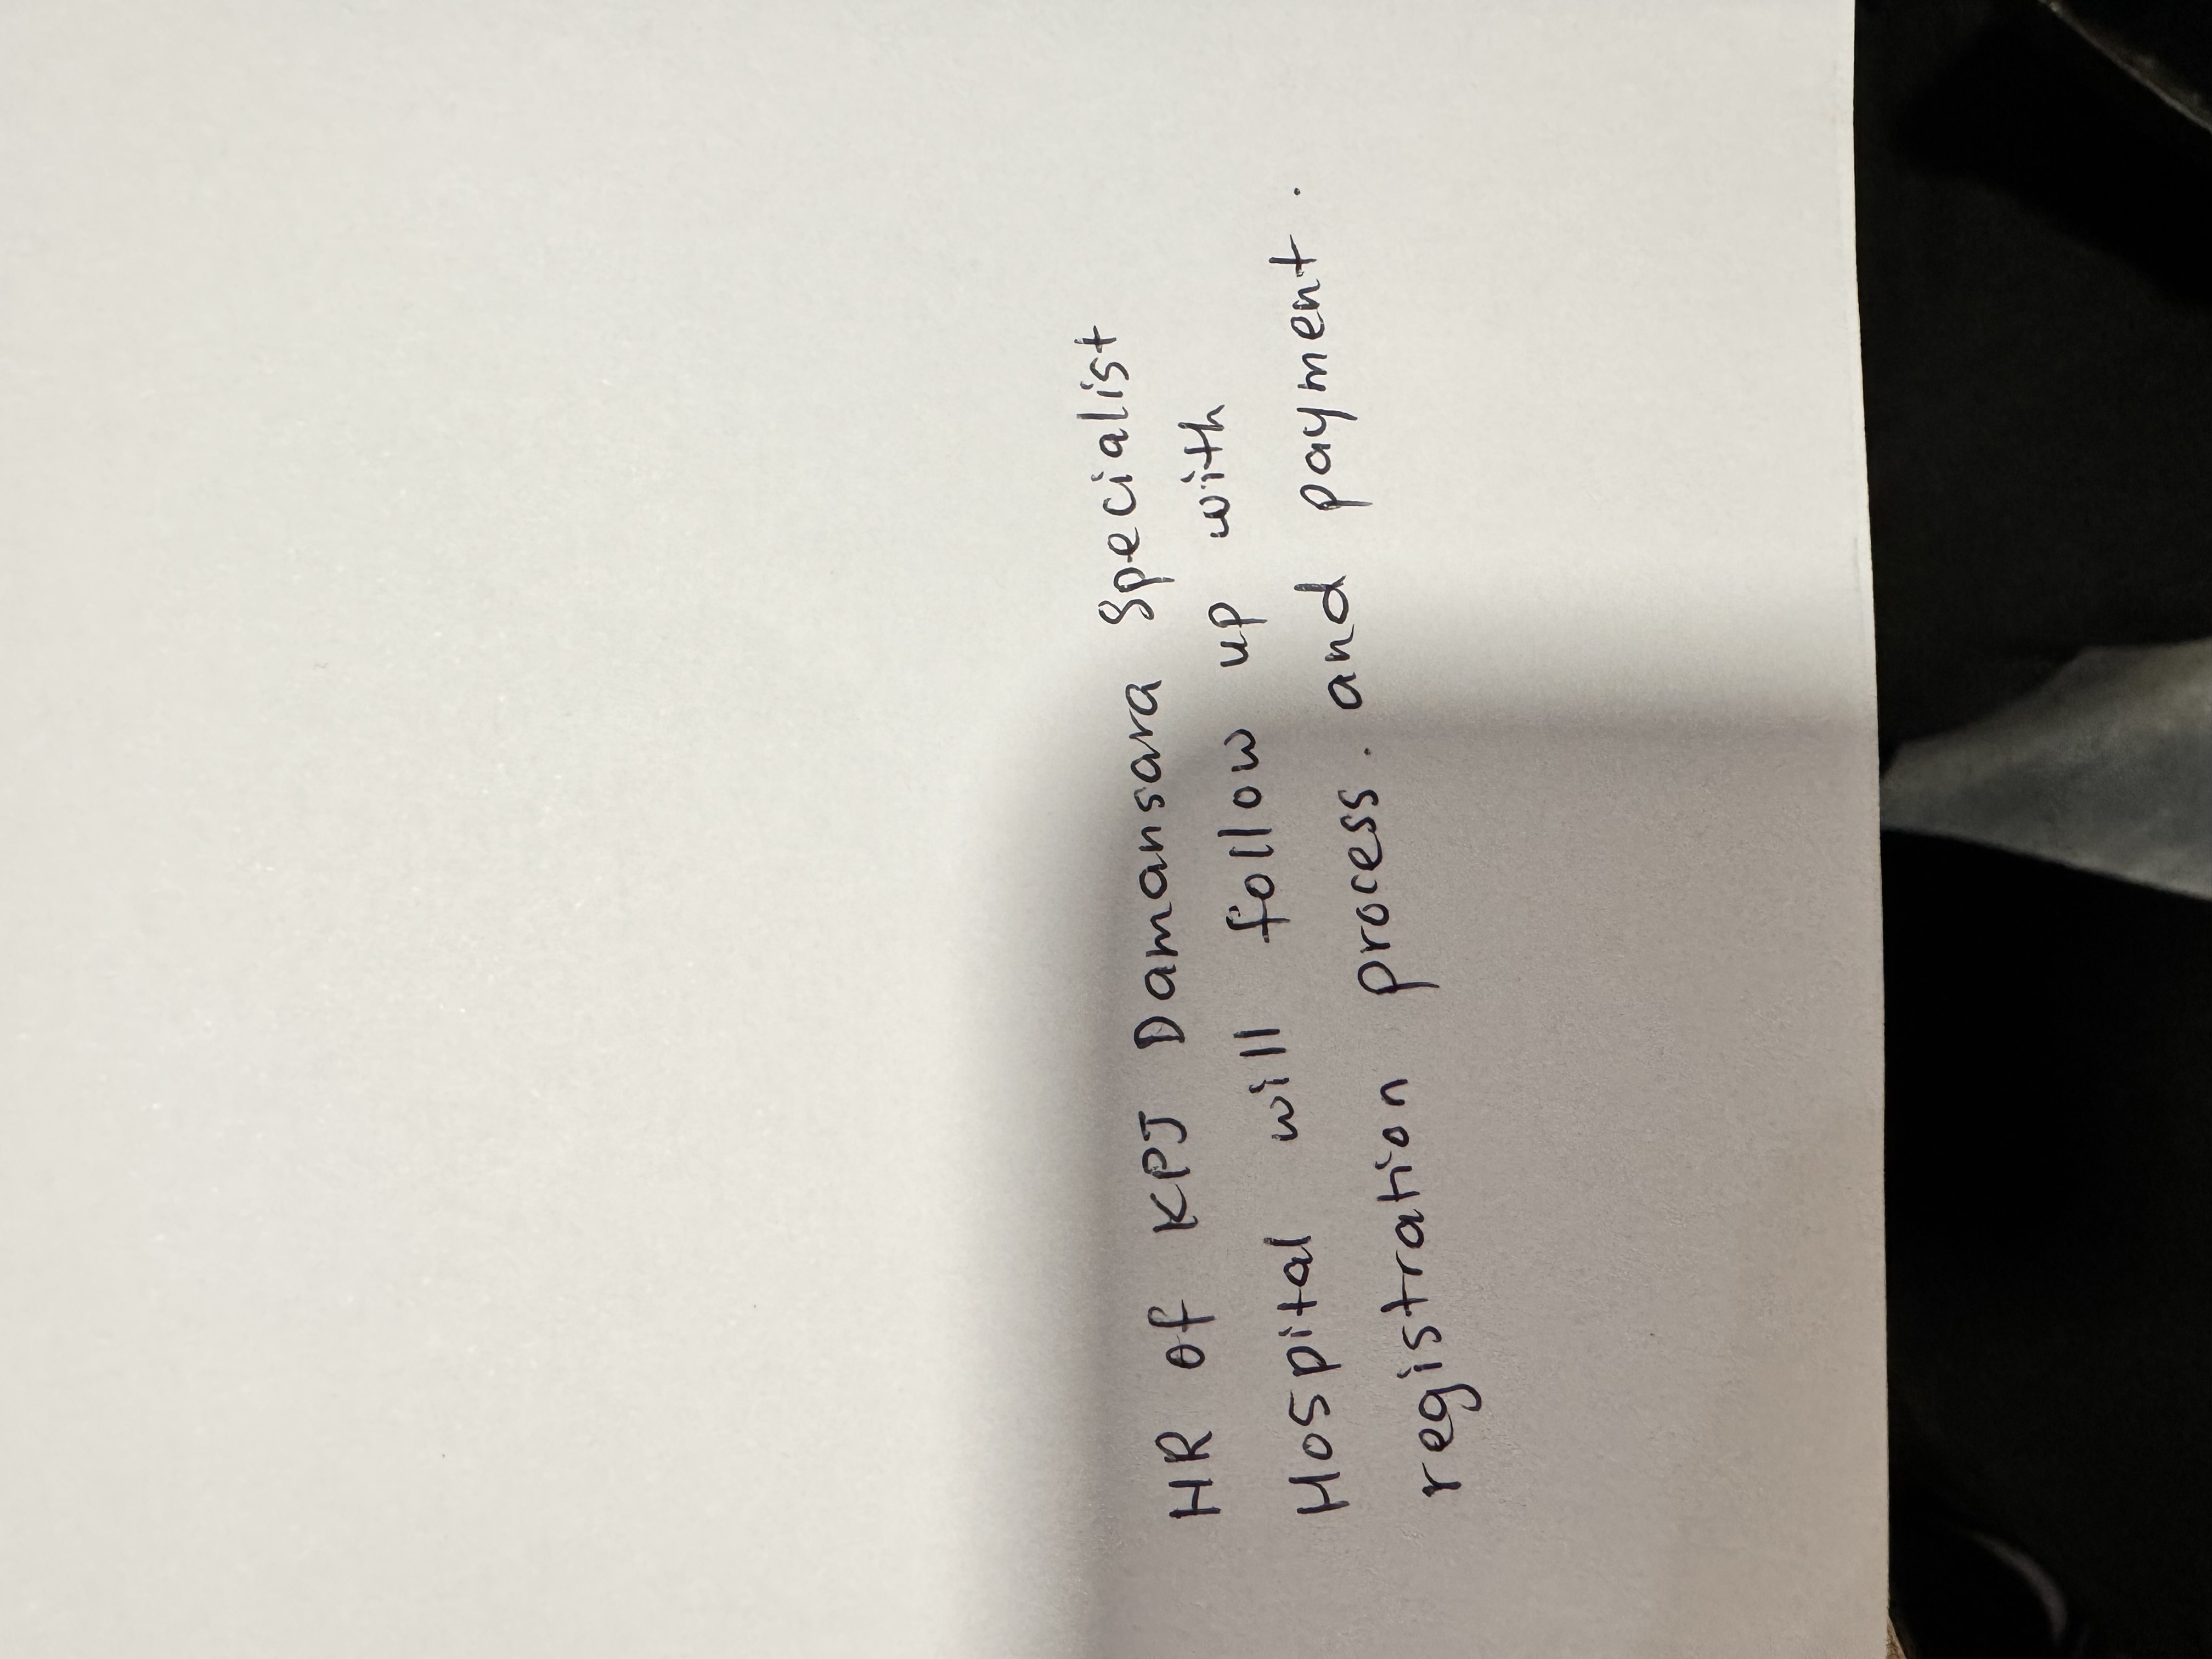 HR of KPJ Damansara Specialist
Hospital will follow up with
registration process. and payment.